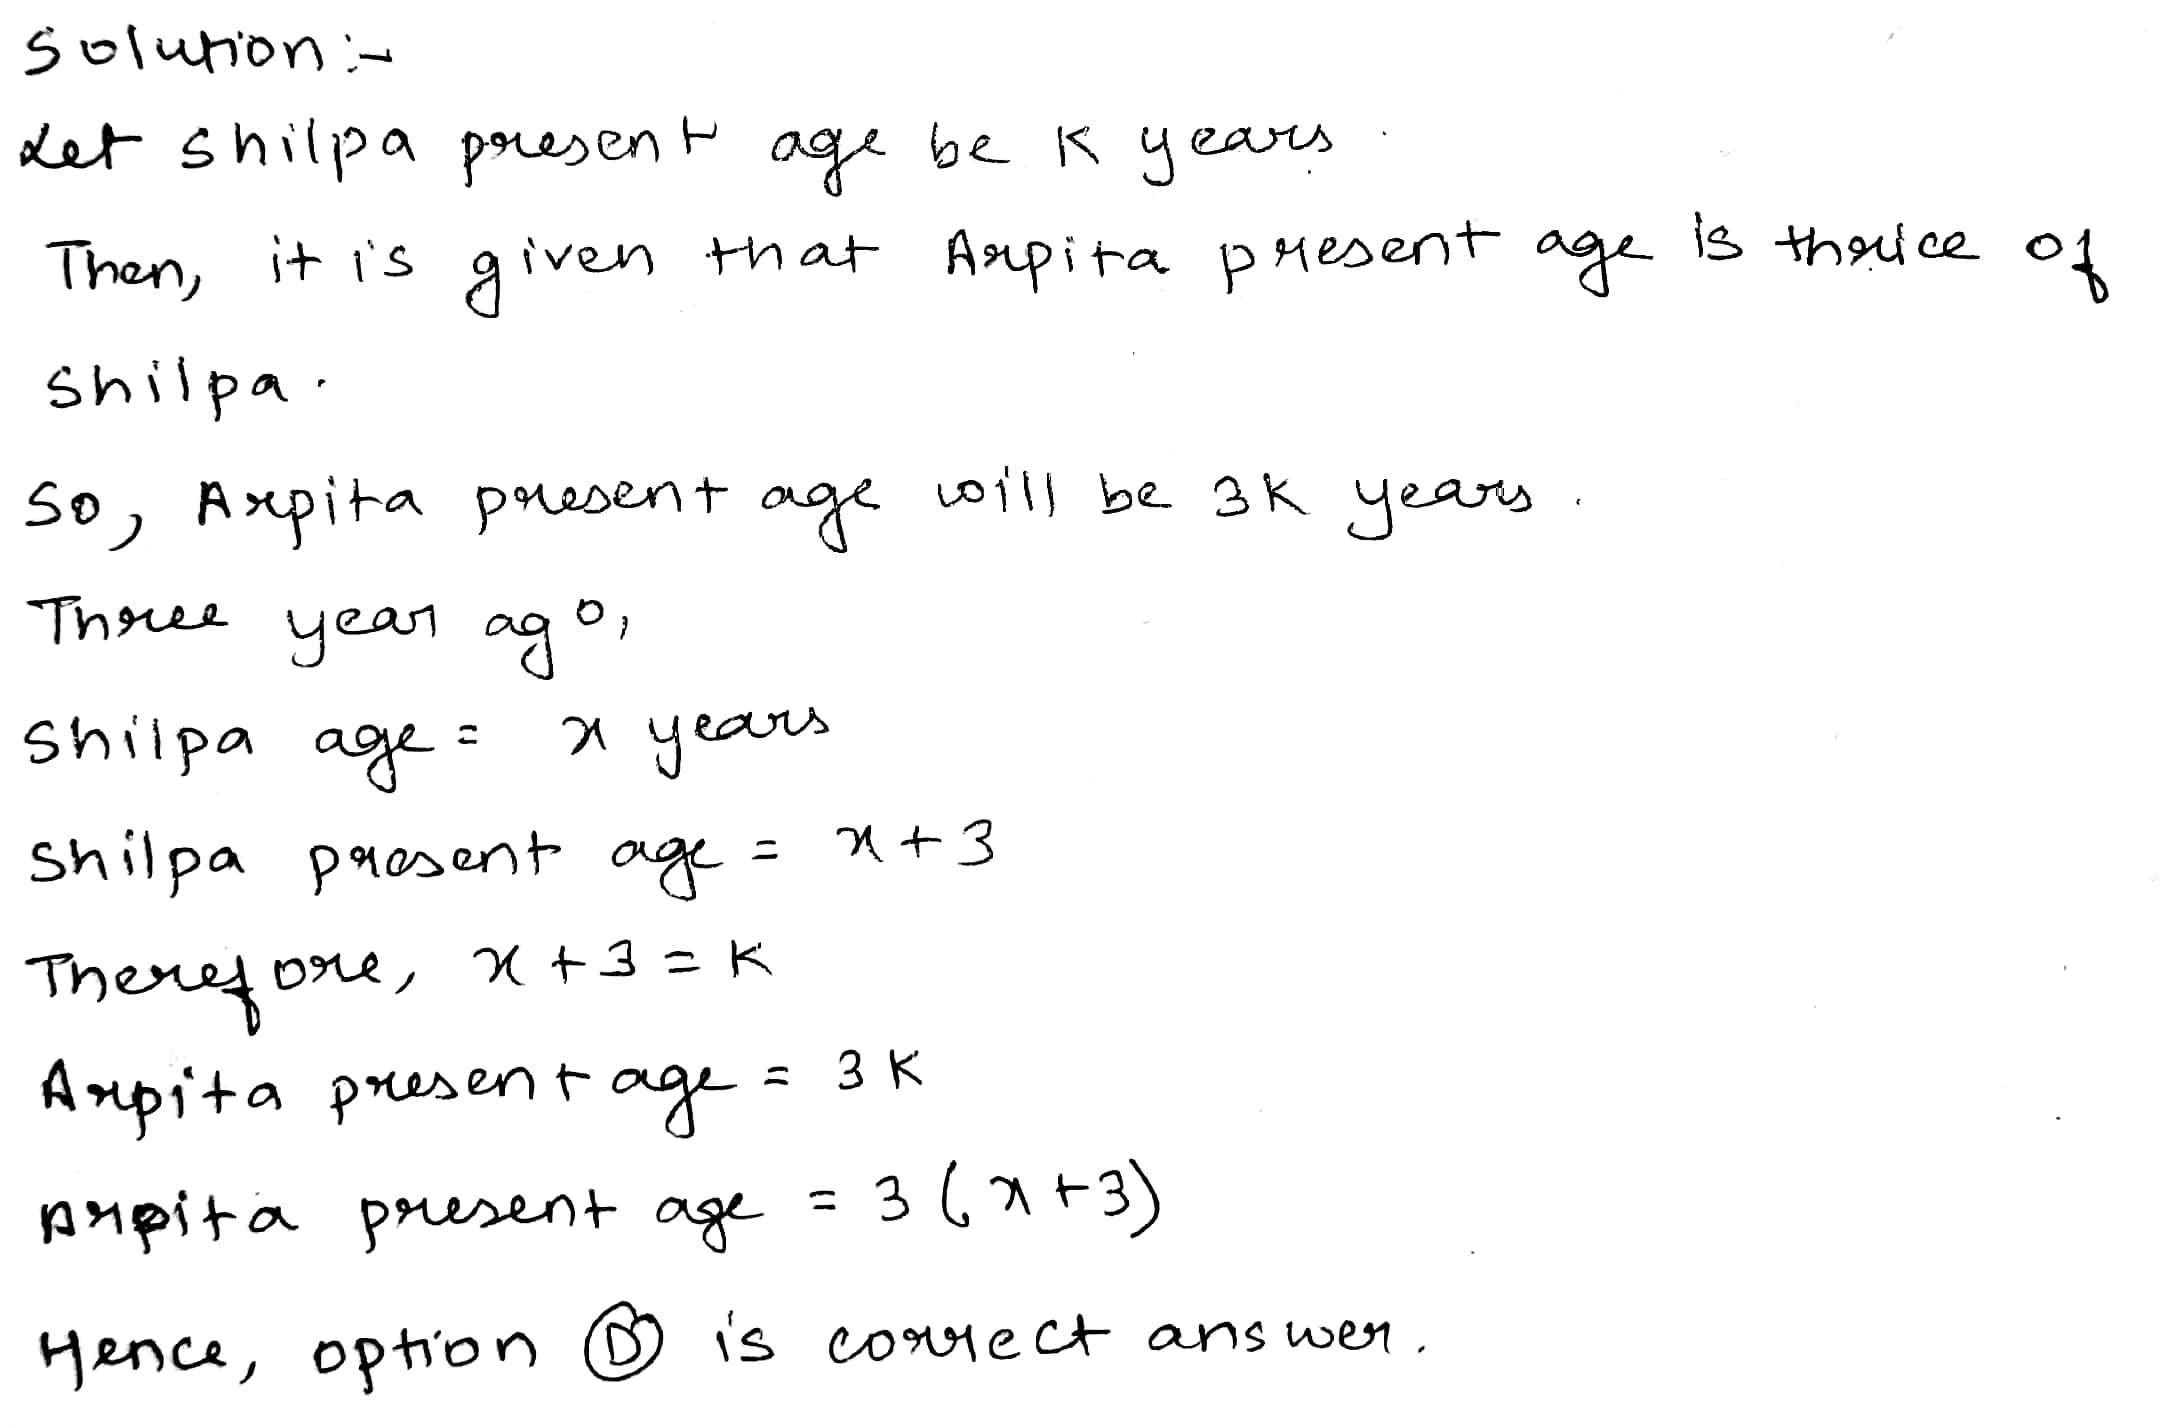 Solution :-
Let shilpa present age be K years.
Then, it is given that Arpita present age is thrice of
shilpa.
So, Arpita present age will be 3K years.
Three year ago,
Shilpa age = x years
Shilpa present age = x+3
Therefore, x+3 = K
Arpita present age = 3K
Arpita present age = 3(x+3)
Hence, option D is correct answer.